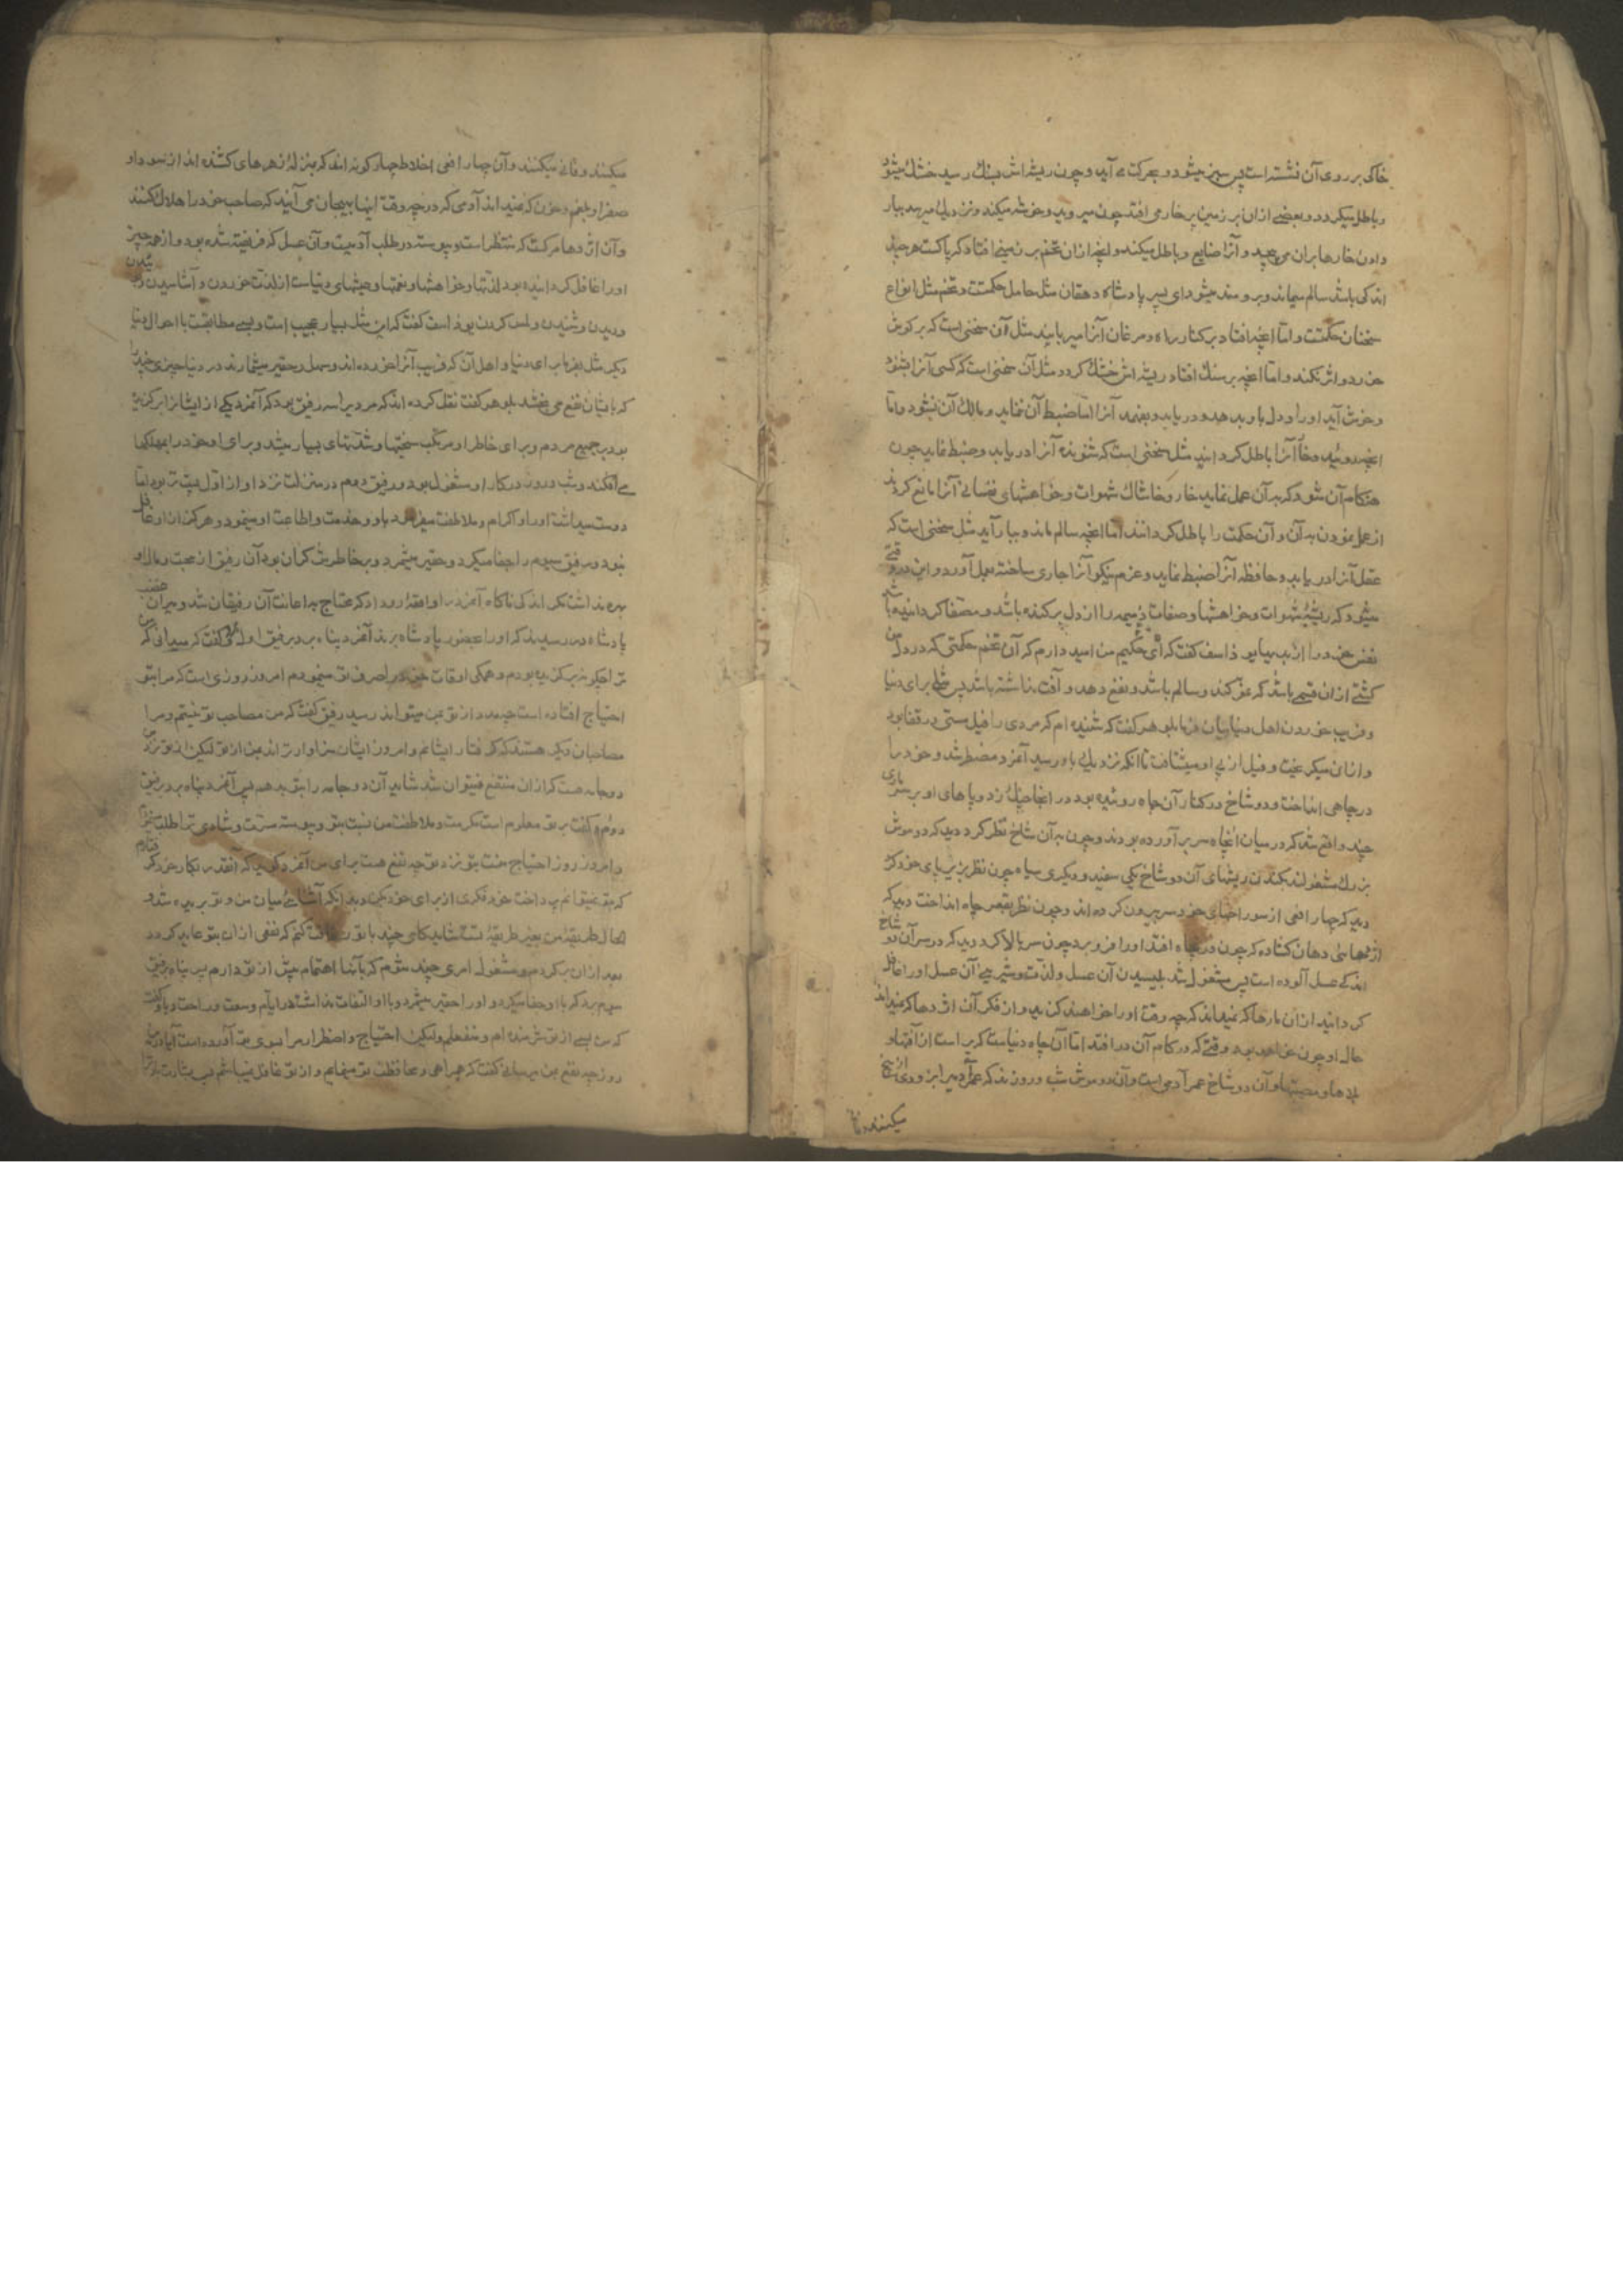 خاکی بر روی آن نشسته است پس سبز میشود و بحرکت می آید و چون ریشه اش بسنک رسید خشک میشود
و باطل میکردد و بعضی ازان بر زمین پر خار می افتد چون میروید و خوشه میکند و نزدیک میرسد ببار
دادن خارها بران می پیچد و آنرا ضایع و باطل میکند و انچه ازان تخم بر زمینی افتاد که پاکست هرچند
اندکی باشد سالم میماند و برومند میشود ای پسر پادشاه دهقان مثل حامل حکمتست و تخم مثل انواع
سخنان حکمتست و اما انچه افتاد بر کنار راه و مرغان آنرا میربایند مثل آن سخنی است که بر کوش
خورد و اثر نکند و اما انچه بر سنک افتاد و ریشه اش خشک کردد مثل آن سخنی است که کسی آنرا بشنود
و خوش آید او را و دل باو بدهد و دریابد و بفهمد آنرا اما ضبط آن ننماید و مالک آن نشود و اما
انچه روئید و خار آنرا باطل کردانید مثل سخنی است که شنونده آنرا دریابد و ضبط نماید چون
هنکام آن شود که به آن عمل نماید خار و خاشاک شهوات و خواهشهای نفسانی آنرا مانع کردند
از عمل نمودن به آن و آن حکمت را باطل کردانند اما انچه سالم ماند و ببار آید مثل سخنی است که
عقل آنرا دریابد و حافظه آنرا ضبط نماید و عزم نیکو آنرا جاری ساخته بعمل آورد و این در وقتی
میشود که ریشهٔ شهوات و خواهشها و صفات ذمیمه را از دل برکنده باشد و مصفا کردانیده باشد
نفس خود را از بدیها یوذاسف کفت که ای حکیم من امید دارم که آن تخم حکمتی که در دل من
کشتی ازان قسمی باشد که نمو کند و سالم باشد و نفع دهد و آفت نداشته باشد پس مثلی برای دنیا
و فریب خوردن اهل دنیا بیان فرما بلوهر کفت که شنیده ام که مردی را فیل مستی در قفا بود
و ازان میکریخت و فیل از پی او میشتافت تا انکه نزدیک باو رسید آنمرد مضطر شد و خود را
در چاهی انداخت و دو شاخ در کنار آن چاه روئیده بود در انجا چنک زد و پاهای او بر سر ماری
چند واقع شد که در میان انچاه سر بر آورده بودند و چون به آن شاخ نظر کرد دید که دو موش
بزرک مشغولند بکندن ریشهای آن دو شاخ یکی سفید و دیکری سیاه چون نظر بزیر پای خود کرد
دید که چهار افعی از سوراخهای خود سر بیرون کرده اند و چون نظر بقعر چاه انداخت دید که
اژدهائی دهان کشاده که چون در چاه افتد او را فرو برد چون سر بالا کرد دید که در سر آن دو شاخ
اندکی عسل آلوده است پس مشغول شد بلیسیدن آن عسل و لذت و شیرینی آن عسل او را غافل
کردانید ازان مارها که نمیداند که چه وقت او را خواهند کزید و از فکر آن اژدها که نمیداند
حال او چون خواهد بود وقتی که در کام آن در افتد اما آن چاه دنیاست که پر است از آفتها و
بلاها و مصیبتها و آن دو شاخ عمر آدمی است و آن دو موش شب و روزند که عمر آدمی را بزودی از بیخ
میکنند و فا
میکنند و فانی میکنند و آن چهار افعی اخلاط چهار کونه اند که بمنزلهٔ زهرهای کشنده اند از سودا و
صفرا و بلغم و خون که نمیداند آدمی که در چه وقت اینها بهیجان می آیند که صاحب خود را هلاک کنند
و آن اژدها مرکست که منتظر است و پیوسته در طلب آدمیست و آن عسل که فریفته شده بود و از همه چیز
او را غافل کردانیده بود لذتها و خواهشها و نعمتها و عیشهای دنیاست از لذت خوردن و آشامیدن و بوئیدن
و دیدن و شنیدن و لمس کردن یوذاسف کفت که این مثل بسیار عجیب است و بسی مطابقست با احوال دنیا
دیکر مثل بفرما برای دنیا و اهل آن که فریب آنرا خورده اند و سهل و حقیر میشمارند در دنیا چیزی چند را
که بایشان نفع می بخشد بلوهر کفت نقل کرده اند که مردیرا سه رفیق بود که آنمرد یکی از ایشانرا برکزیده
بود بر جمیع مردم و برای خاطر او مرتکب سختیها و شدتهای بسیار میشد و برای او خود را بمهلکها
می افکند و شب و روز در کار او مشغول بود و رفیق دوم در منزلت نزد او از اول پست تر بود اما
دوست میداشت او را و اکرام و ملاطفت می‌نمود باو و خدمت و اطاعت او مینمود و هرکز از او غافل
نبود و رفیق سیوم را جفا میکرد و حقیر میشمرد و بر خاطرش کران بود آن رفیق از محبت و مال او
بهره نداشت مکر اندکی ناکاه آنمرد را واقعهٔ رو داد که محتاج به اعانت آن رفیقان شد و میران غضب
پادشاه در رسیدند که او را بحضور پادشاه برند آنمرد پناه برد برفیق اول و کفت که میدانی که من
ترا چکونه برکزیده بودم و همکی اوقات خود را صرف تو مینمودم امروز روزی است که مرا بتو
احتیاج افتاده است چه مدد از تو بمن میتواند رسید رفیق کفت که من مصاحب تو نیستم و مرا
مصاحبان دیکر هستند که کرفتار ایشانم و امروز ایشان سزاوارترند بمن از تو لیکن از تو نزد من
دو جامه هست که ازان منتفع نمیتوان شد شاید آن دو جامه را بتو بدهم پس آنمرد پناه برد برفیق
دوم و کفت بر تو معلوم است مکرمت و ملاطفت من نسبت بتو و پیوسته مسرت و شادی ترا طلب میکردم
و امروز روز احتیاج منست بتو نزد تو چه نفع هست برای من آنمرد کوید که آنقدر بکار خود درمانده‌ام
که بتو نمیتوانم پرداخت خود فکری از برای خود بکن و بدانکه آشنائی میان من و تو بریده شد و
الحال طریقهٔ من بغیر طریقهٔ تست شاید کامی چند با تو رفاقت کنم که نفعی ازان بتو عاید نکردد
بعد ازان برکردم و مشغول امری چند شوم که بآنها اهتمام بیش از تو دارم پس پناه برفیق
سیوم برد که با او جفا میکرد و او را حقیر میشمرد و باو التفات نداشت در ایام وسعت و راحت و باو کفت
که من بسی از تو شرمنده ام و منفعلم ولیکن احتیاج و اضطرار مرا بسوی تو آورده است آیا در این
روز چه نفع بمن میرسانی کفت که همراهی و محافظت تو مینمایم و از تو غافل نمیباشم پس بشارت باد ترا